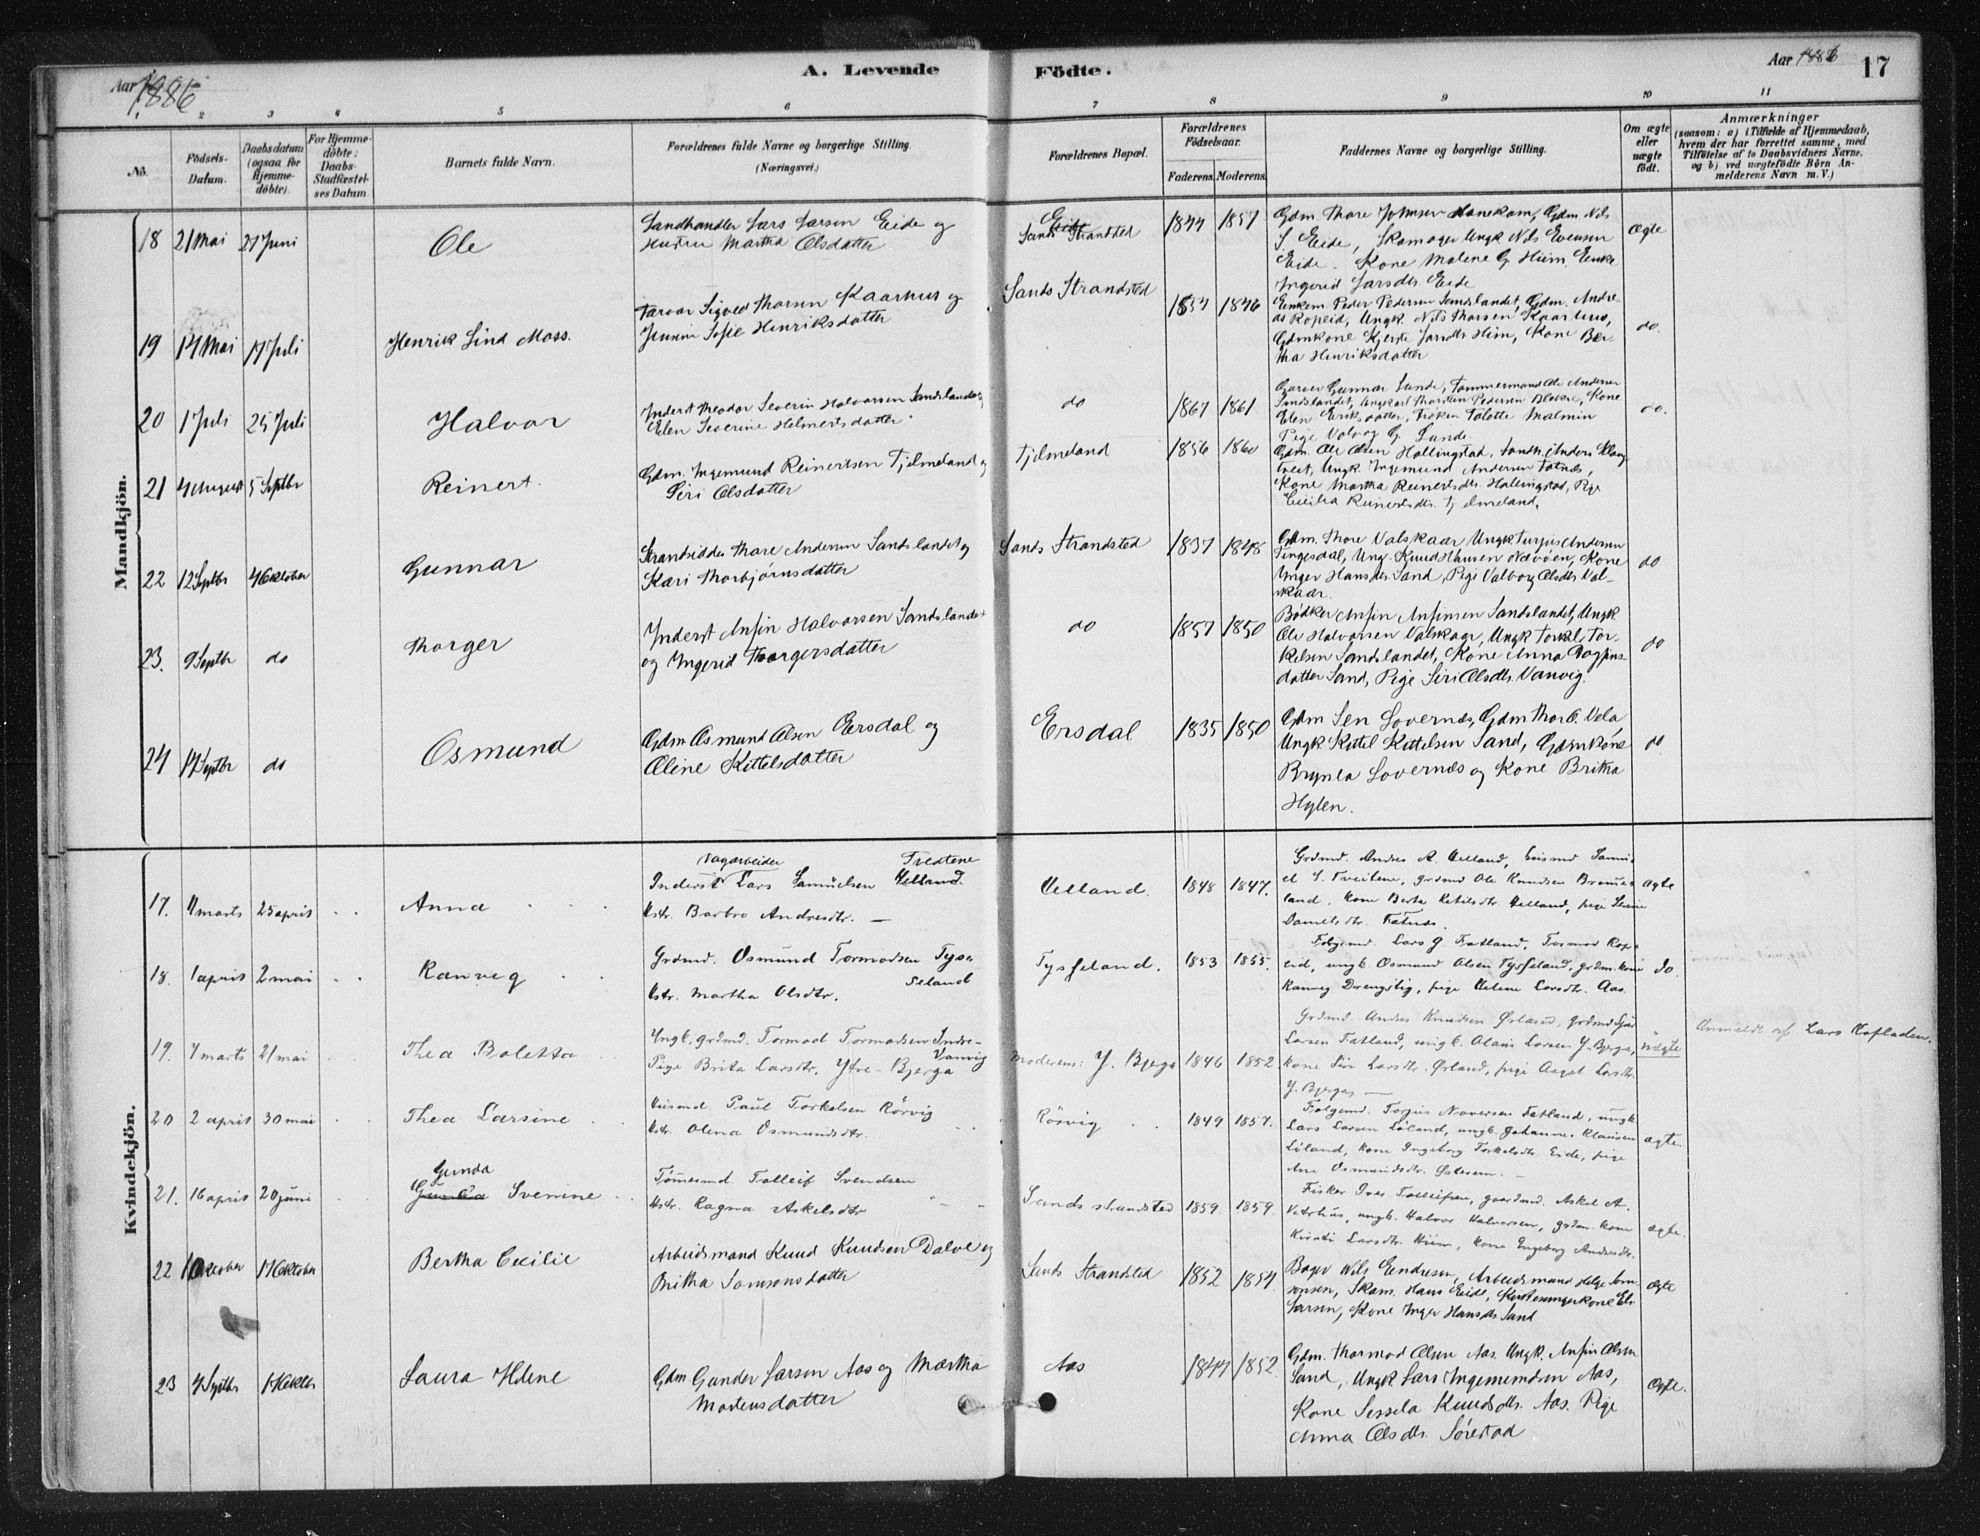 Aar 1886
A. Levende Födte.
Aar 1886 17
1 2 3 4 5 6 7 8 9 10 11
No.
Födsels-Datum.
Daabsdatum (ogsaa for Hjemme-döbte).
For Hjemme-döbte: Daabs-Stadfæstel-ses Datum.
Barnets fulde Navn.
Forældrenes fulde Navne og borgerlige Stilling. (Næringsvei.)
Forældrenes Bopæl.
Forældrenes Födselsaar.
Faderens. Moderens.
Faddernes Navne og borgerlige Stilling.
Om ægte eller uægte födt.
Anmærkninger
(saasom: a) i Tilfælde af Hjemmedaab, hvem der har forrettet samme, med Tilföielse af to Daabsvidners Navne, og b) ved uægtefödte Börn An-melderens Navn m. V.)
Mandkjön.
18 21 Mai 27 Juni Ole
Landhandler Lars Larsen Eide og
Hustru Martha Olsdatter
Sands Strandsted 1844 1857
Gdm. Thore Johnsen Hanekam, Gdm Nils
S. Eide, Skomager Ungk. Nils Evensen
Eide. Kone Malene G. Hiim. Enke
Ingerid Larsdtr Eide
Ægte
19 14 Mai 11 Juli Henrik Lind Moss.
Farver Sigved Thorsen Kaarhus og
Sofie Henriksdatter
Sands Strandsted 1854 1846
Enkem. Peder Pedersen Sandslandet, Gdm. Andre-
as Ropeid, Ungk. Nils Thorsen Kaarhus,
Gdmkone Kjerste Larsdtr Hiim, Kone Ber-
tha Henriksdatter
do.
20 1 Juli 25 Juli Halvor
Inderst Theodor Severin Halvorsen Sandslandet og
Elen Severine Helmertsdatter
do 1867 1861
Garver Gunnar Sande, Tømmermand Ole Andersen
Sandslandet, Ungkarl Thorsten Pedersen, Kone
Elen Eriksdatter, Frøken Malmin
Pige Valborg G. Sande
do.
21 4 August 5 Septbr Reinert.
Gdm. Ingemund Reinertsen Tjelmeland og
Siri Olsdatter
Tjelmeland 1856 1860
Gdm. Ole Olsen Hallingstad, Anders
Ungk. Ingemund Andersen Fatnes,
Kone Martha Reinertsdtr. Hallingstad, Pige
Cecilia Reinertsdtr. Tjelmeland.
22 12 Septbr 4 Oktober Gunnar
Strandsidder Thore Andersen Sandslandet og
Kari Thorbjørnsdatter
Sands Strandsted 1837 1848
Gdm. Thore Valskaar Ungk Turpis Andersen
Tengesdal, Ung. Knud Hansen, Kone
Inger Hansdtr Sand, Pige Valborg Olsdtr Val-
skaar.
do
23. 9 Septbr do Thorger
Inderst Anfin Halvorsen Sandslandet
og Ingerid Thorgersdatter
do 1857 1850
Bødker Anfin Anfinsen Sandslandet, Ungk
Ole Halvorsen Valskaar, Ungk Torkel Tor-
kelsen Sandslandet, Kone Anna Dagfins-
datter Sand, Pige Siri Olsdtr. Vanvig.
do
24 14 Septbr do Osmund
Gdm Osmund Olsen Ersdal og
Oline Kittelsdatter
Ersdal 1835 1850
Gdm Sen Lovernæs, Gdm Thor O. Vela
Ungk Kittel Kittelsen Sand, Gdmkone
Brynla Lovernæs og Kone Britha
Hylen.
do
Kvindekjön.
17. 4 marts 25 april Anna
Vagarbeider Tveitene
Inderst Lars Samuelsen Helland
Hstr. Barbro Andresdtr.
Helland. 1848 1847.
Grdmd. Andres A. Helland, Husmd Samu-
el S. Tveitene, grdmd Ole Knudsen Brome-
land, Kone Berta Ketilsdtr Helland, pige Serine
Danielsdtr. Fatnes.
ægte
18. 1 april 2 mai Ranveg
Grdmd. Osmund Tormodsen Tys-
seland
Hstr. Martha Olsdtr.
Tysseland. 1853 1855.
Folgemd. Lars G. Fatland, Tormod Rop-
eid, ungk. Osmund Olsen Tysseland, grdm.kone
Ranveg Drengstig, pige Helene Larsdtr. Aas.
Do.
19. 7 marts 21 mai Thea Boletta
Ungk. grdmd. Tormod Tormodsen Indre-
Vanvig
Pige Brita Larsdtr. Ytre-Bjerga
Moderens: Y. Bjerga 1846 1852
Grdmd. Andres Knudsen Ørland, grdmd
Larsen Fatland, ungk. Olaus Larsen Y. Bjerga,
kone Siri Larsdtr. Ørland, pige Aagot Larsdtr.
Y. Bjerga.
uægte
Anmeldt af Lars Hofladen.
20 2 april 30 mai Thea Larsine
Husmd. Paul Torkelsen Rørvig
Hstr. Olena Osmundsdtr.
Rørvig 1849 1857.
Folgemd. Torjus Fatland, ungk.
Lars Larsen Løland, ungk. Johannes Klausen
Løland, kone Ingeborg Torkelsdtr. Eide, pige
Ane Osmundsdtr.
ægte.
21. 16 april 20 juni Gunda
Gunda Svenine
Tømmermd Tolleif Svendsen
Hstr. Ragna Askelsdtr
Sands strandsted 1859. 1859.
Fisker Iver Tolleifsen, gaardmd. Askel A.
ungk. Halvor Halvorsen, grdm. kone
Larsdtr. Hiim, kone Ingeborg Andresdtr.
ægte.
22 1 Oktober 17 Oktober Bertha Cecilie
Arbeidsmand Knud Knudsen Dalve og
Britha Samsonsdatter
Sands Strandsted 1852 1854
Bager Nils Endresen, Arbeidsmand Helge Sam-
sonsen, Skom. Hans Eide, Kirkesangerkone Elv
Larsen, Kone Inger Hansdtr Sand
Ægte
23 4 Septbr Laura Helene
Gdm Gunder Larsen Aas og Martha
Mortensdatter
Aas 1847 1852.
Gdm. Thormod Olsen Aas. Ungk. Anfin Olsen
Sand, Ungk Lars Ingemundsen Aas,
Kone Sessela Knudsdtr. Aas. Pige
Anna Olsdtr. Sørestad
Ægte.